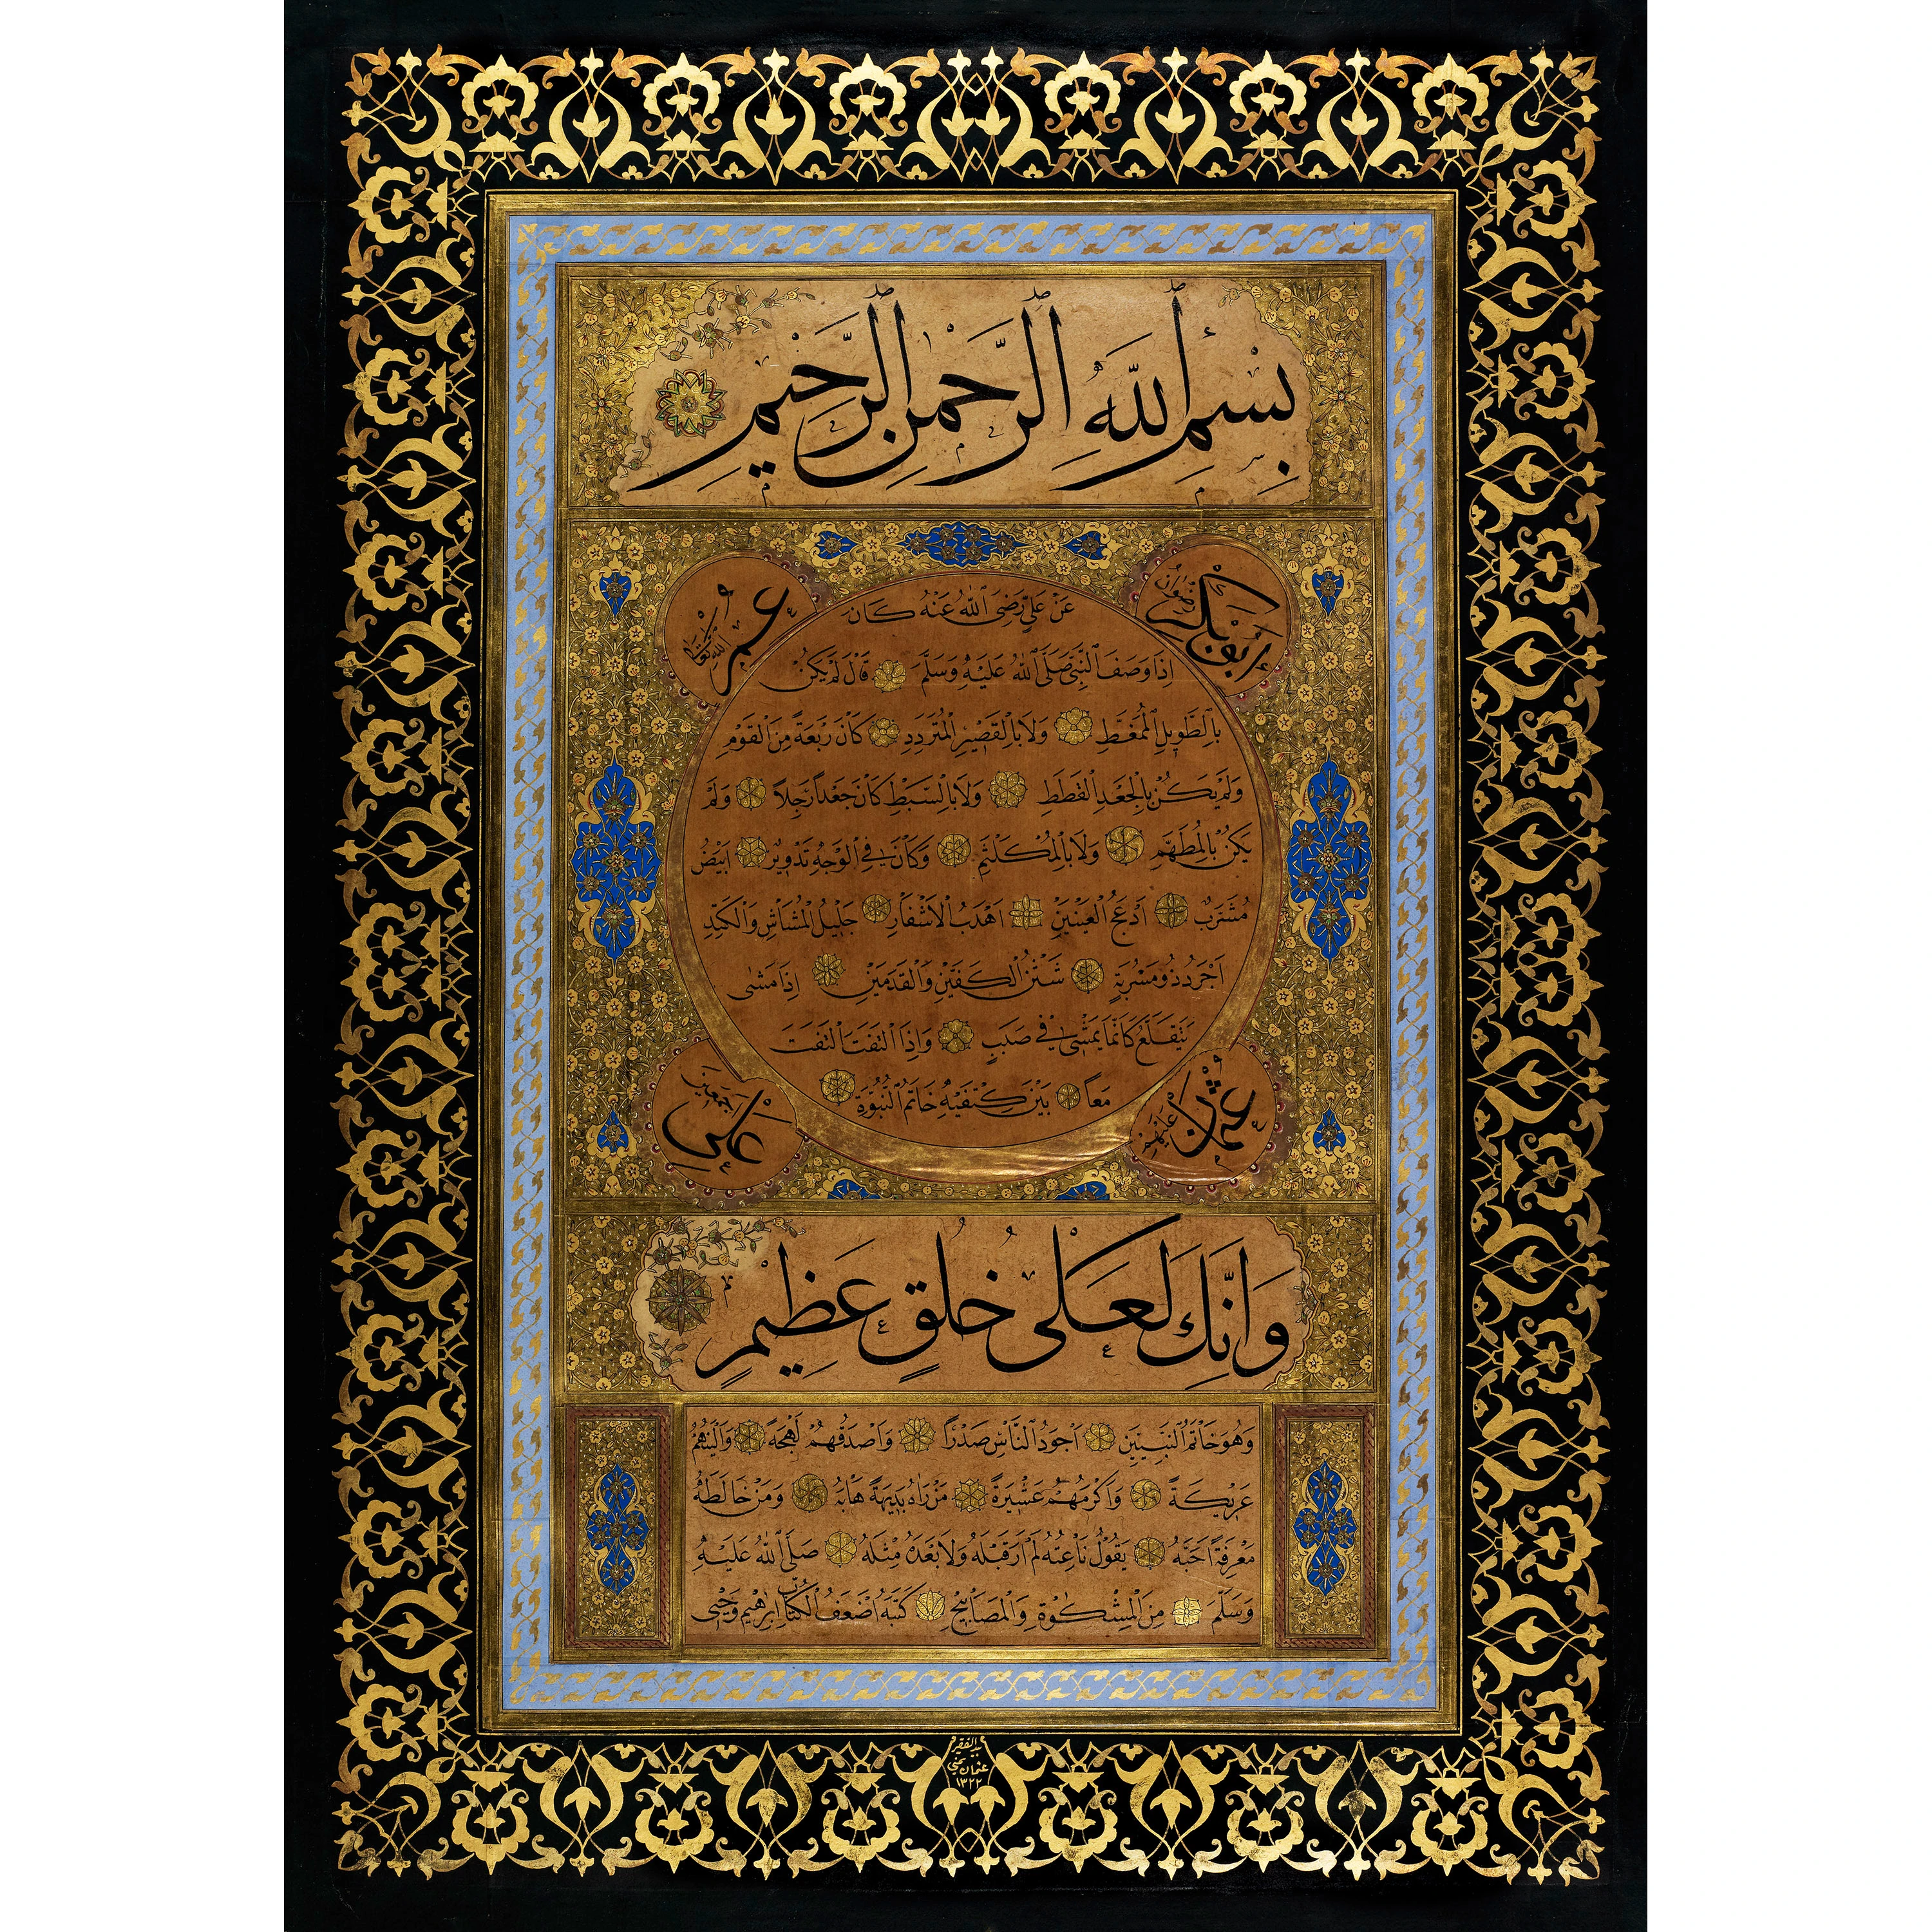 بِسْمِ اللَّهِ الرَّحْمَنِ الرَّحِيمِ
ابو بكر رضوان
عمر الله تعالى
عَنْ عَلِيٍّ رَضِيَ اللهُ عَنْهُ كَانَ
اِذَا وَصَفَ النَّبِيَّ صَلَّى اللهُ عَلَيْهِ وَسَلَّمَ قَالَ لَمْ يَكُنْ
بِالطَّوِيلِ الْمُمَّغِطِ وَلَا بِالْقَصِيرِ الْمُتَرَدِّدِ كَانَ رَبْعَةً مِنَ الْقَوْمِ
وَلَمْ يَكُنْ بِالْجَعْدِ الْقَطَطِ وَلَا بِالسَّبْطِ كَانَ جَعْدًا رَجِلًا وَلَمْ
يَكُنْ بِالْمُطَهَّمِ وَلَا بِالْمُكَلْثَمِ وَكَانَ فِي الْوَجْهِ تَدْوِيرٌ اَبْيَضُ
مُشْرَبٌ اَدْعَجُ الْعَيْنَيْنِ اَهْدَبُ الْاَشْفَارِ جَلِيلُ الْمُشَاشِ وَالْكَتَدِ
اَجْرَدُ ذُو مَسْرُبَةٍ شَثْنُ الْكَفَّيْنِ وَالْقَدَمَيْنِ اِذَا مَشَى
يَتَقَلَّعُ كَاَنَّمَا يَمْشِي فِي صَبَبٍ وَاِذَا الْتَفَتَ الْتَفَتَ
مَعًا بَيْنَ كَتِفَيْهِ خَاتَمُ النُّبُوَّةِ
عثمان عليهم
علي اجمعين
وَاِنَّكَ لَعَلَى خُلُقٍ عَظِيمٍ
وَهُوَ خَاتَمُ النَّبِيِّينَ اَجْوَدُ النَّاسِ صَدْرًا وَاَصْدَقُهُمْ لَهْجَةً وَاَلْيَنُهُمْ
عَرِيكَةً وَاَكْرَمُهُمْ عَشِيرَةً مَنْ رَاٰهُ بَدِيهَةً هَابَهُ وَمَنْ خَالَطَهُ
مَعْرِفَةً اَحَبَّهُ يَقُولُ نَاعِتُهُ لَمْ اَرَ قَبْلَهُ وَلَا بَعْدَهُ مِثْلَهُ صَلَّى اللهُ عَلَيْهِ
وَسَلَّمَ مِنَ الْمِشْكٰوةِ وَالْمَصَابِيحِ كَتَبَهُ اَضْعَفُ الْكُتَّابِ اِبْرٰهِيم
الفقير
عثمان يمني
١٣٢٢